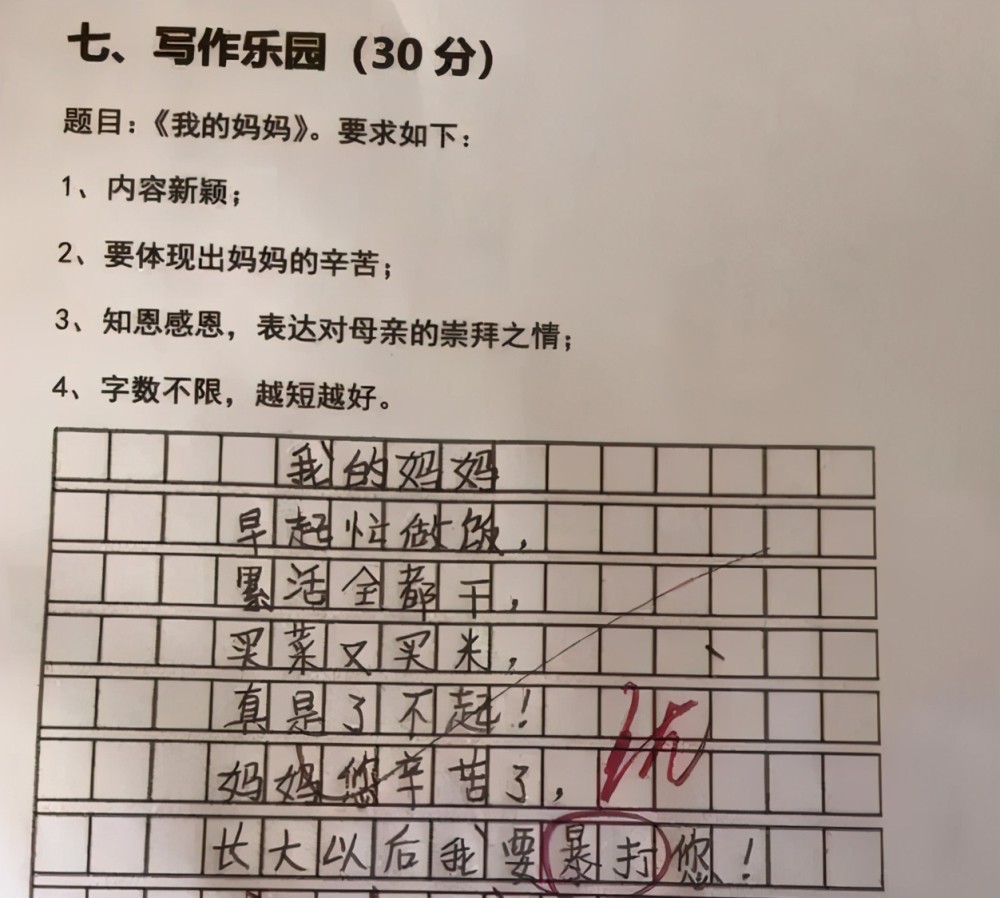 七、写作乐园（30 分）
题目：《我的妈妈》。要求如下：
1、内容新颖；
2、要体现出妈妈的辛苦；
3、知恩感恩，表达对母亲的崇拜之情；
4、字数不限，越短越好。
我的妈妈
早起忙做饭，
累活全都干，
买菜又买米，
真是了不起！
妈妈您辛苦了，
长大以后我要暴打您！